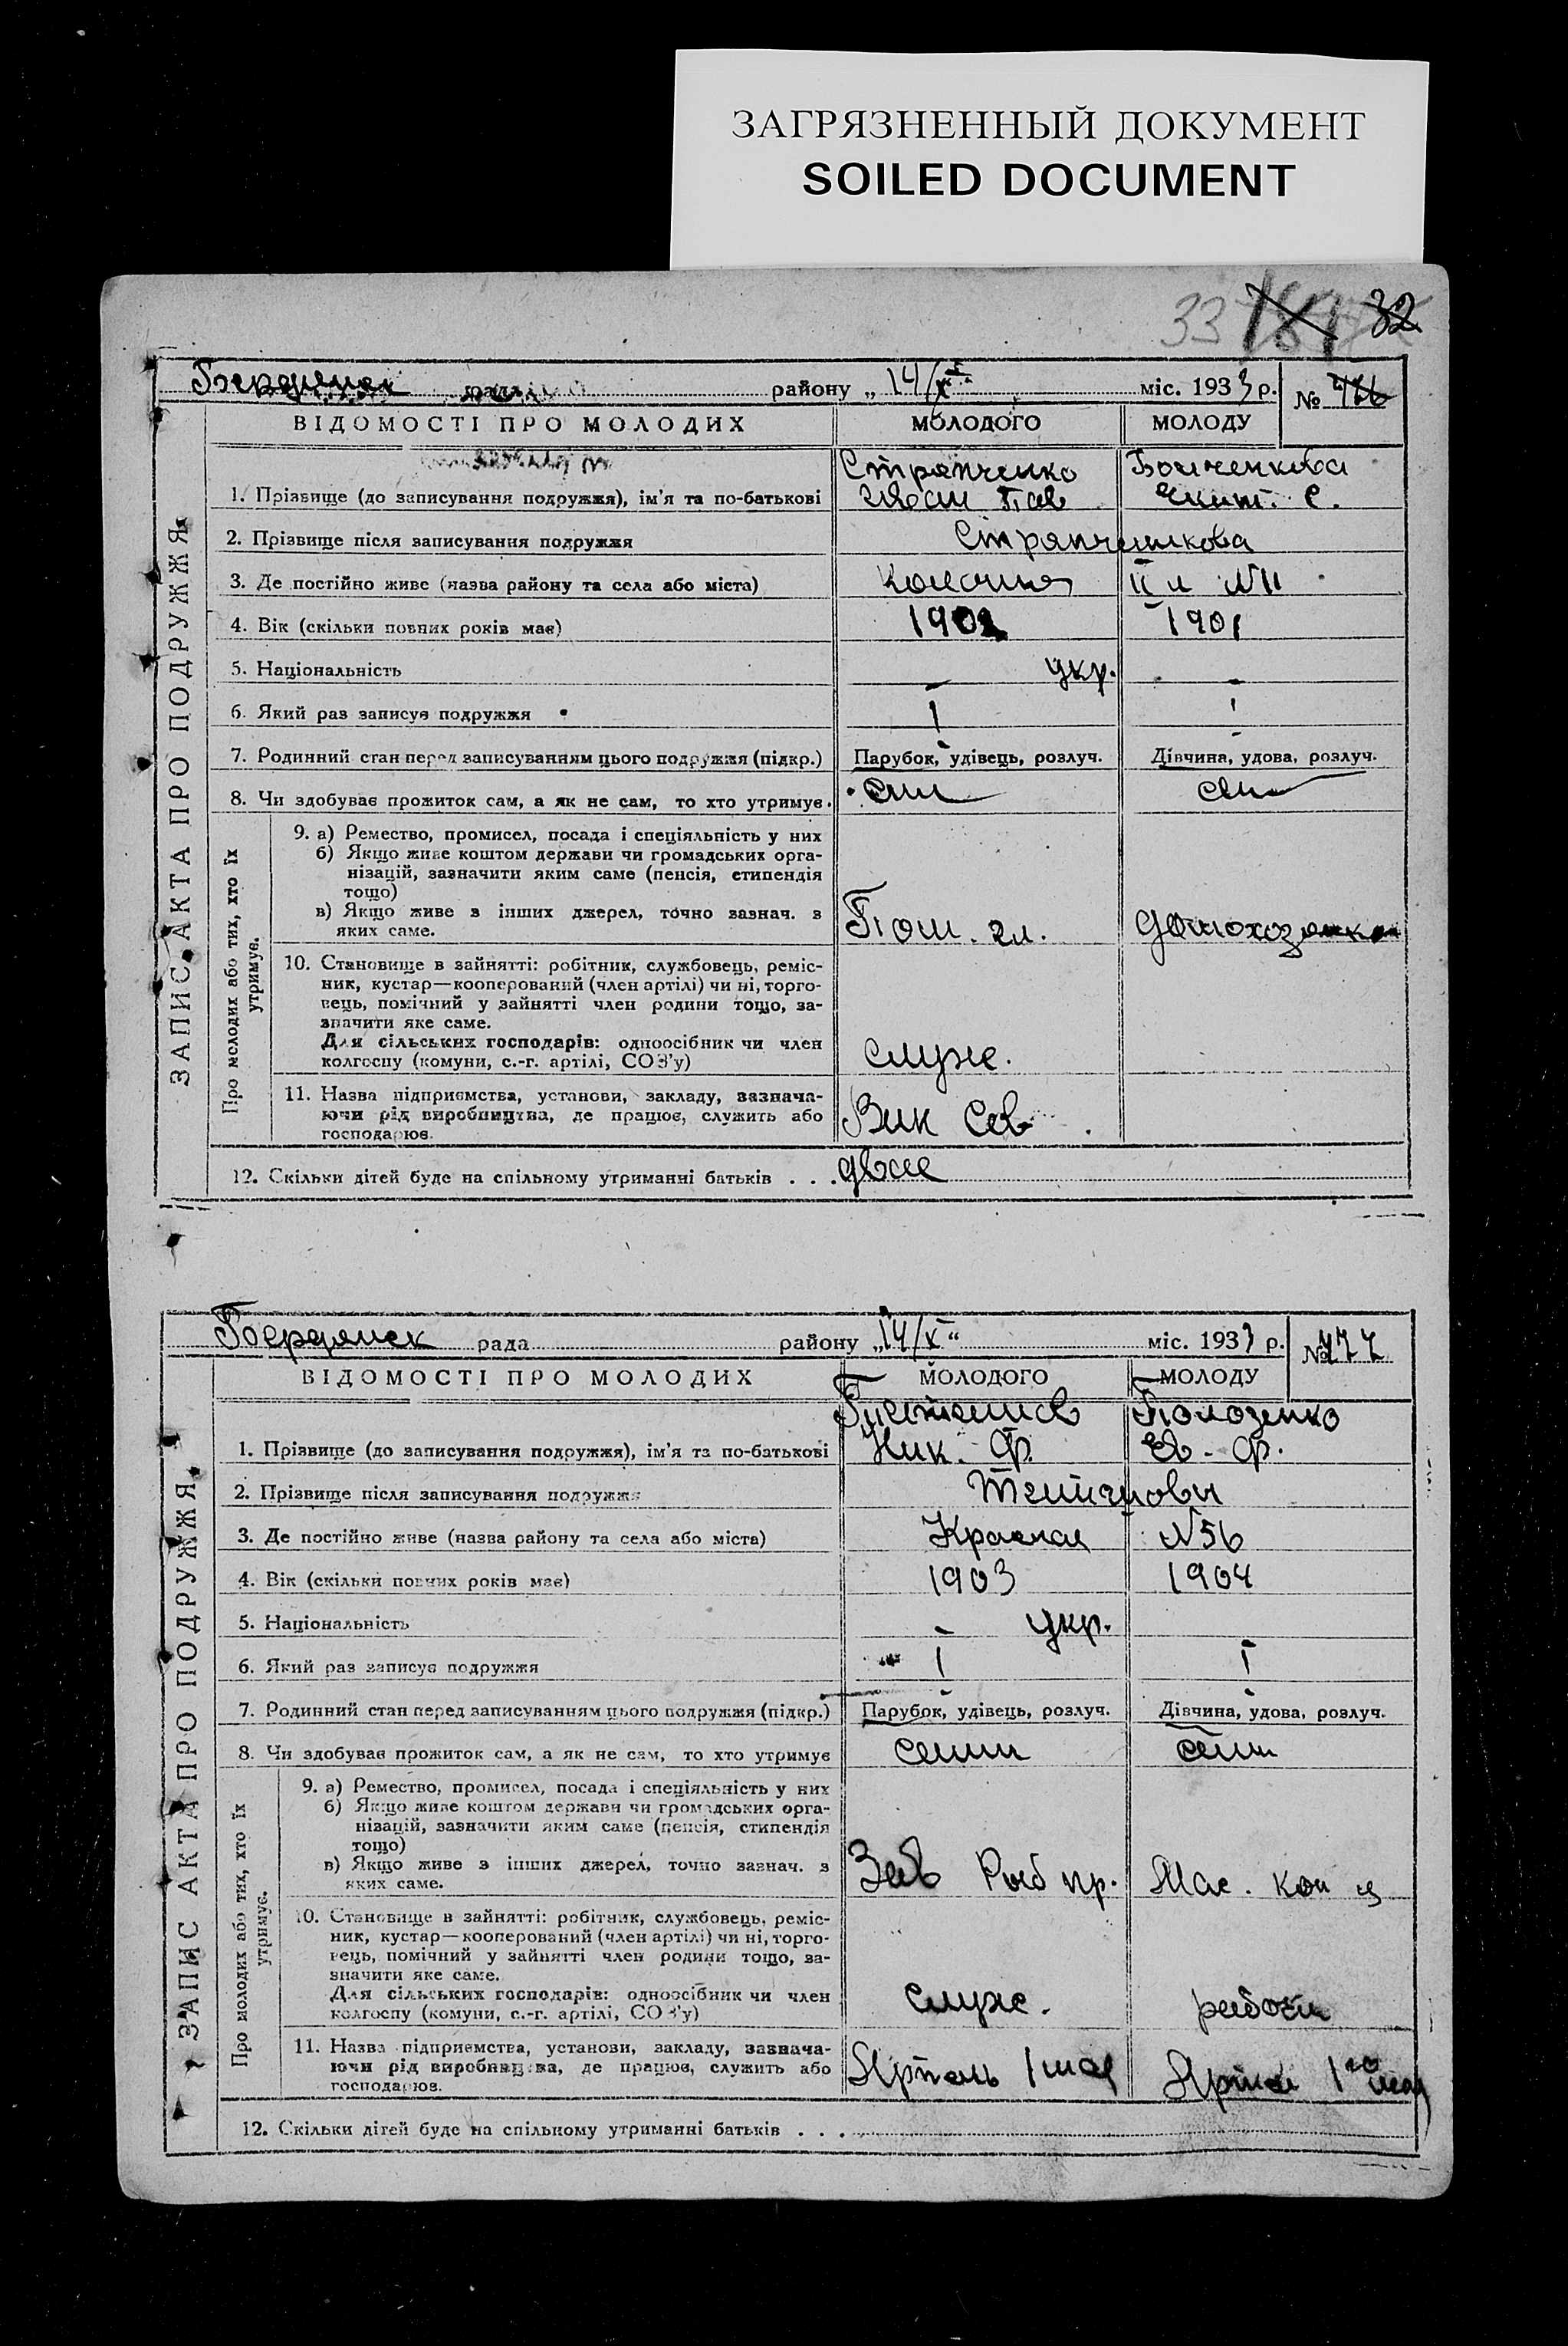 ЗАГРЯЗНЕННЫЙ ДОКУМЕНТ
SOILED DOCUMENT
33 181 32
Бердянск району „ 14/X міс. 1933 р. №
ВІДОМОСТІ ПРО МОЛОДИХ МОЛОДОГО МОЛОДУ
ЗАПИС АКТА ПРО ПОДРУЖЖЯ
Стрпченко
1. Прізвище (до записування подружжя), ім'я та по-батькові Иван Пав
2. Прізвище після записування подружжя
3. Де постійно живе (назва району та села або міста) №11
4. Вік (скільки повних років має) 1902 1901
5. Національність укр.
6. Який раз записує подружжя 1 1
7. Родинний стан перед записуванням цього подружжя (підкр.) Парубок, удівець, розлуч. Дівчина, удова, розлуч.
8. Чи здобуває прожиток сам, а як не сам, то хто утримує. сам сам
Про молодих або тих, хто їх утримує.
9. а) Ремество, промисел, посада і спеціяльність у них
б) Якщо живе коштом держави чи громадських орга-
нізацій, зазначити яким саме (пенсія, стипендія
тощо)
в) Якщо живе з інших джерел, точно зазнач. з
яких саме. домохозяйка
10. Становище в зайнятті: робітник, службовець, реміс-
ник, кустар—кооперований (член артілі) чи ні, торго-
вець, помічний у зайнятті член родини тощо, за-
значити яке саме.
Для сільських господарів: одноосібник чи член
колгоспу (комуни, с.-г. артілі, СОЗ'у) служ.
11. Назва підприємства, установи, закладу, зазнача-
ючи рід виробництва, де працює, служить або
господарює.
12. Скільки дітей буде на спільному утриманні батьків . . . двое
Бердянск рада району „14/X“ міс. 1933 р. № 477
ВІДОМОСТІ ПРО МОЛОДИХ МОЛОДОГО МОЛОДУ
ЗАПИС АКТА ПРО ПОДРУЖЖЯ
Полозенко
1. Прізвище (до записування подружжя), ім'я та по-батькові Ник. Ф. Ев. Ф.
2. Прізвище після записування подружжя
3. Де постійно живе (назва району та села або міста) Красная №56
4. Вік (скільки повних років має) 1903 1904
5. Національність укр.
6. Який раз записує подружжя 1 1
7. Родинний стан перед записуванням цього подружжя (підкр.) Парубок, удівець, розлуч. Дівчина, удова, розлуч.
8. Чи здобуває прожиток сам, а як не сам, то хто утримує
Про молодих або тих, хто їх утримує.
9. а) Ремество, промисел, посада і спеціяльність у них
б) Якщо живе коштом держави чи громадських орга-
нізацій, зазначити яким саме (пенсія, стипендія
тощо)
в) Якщо живе з інших джерел, точно зазнач. з
яких саме. Зав
10. Становище в зайнятті: робітник, службовець, реміс-
ник, кустар—кооперований (член артілі) чи ні, торго-
вець, помічний у зайнятті член родини тощо, за-
значити яке саме.
Для сільських господарів: одноосібник чи член
колгоспу (комуни, с.-г. артілі, СОЗ'у) служ.
11. Назва підприємства, установи, закладу, зазнача-
ючи рід виробництва, де працює, служить або
господарює. Артель 1 мая
12. Скільки дітей буде на спільному утриманні батьків . . .